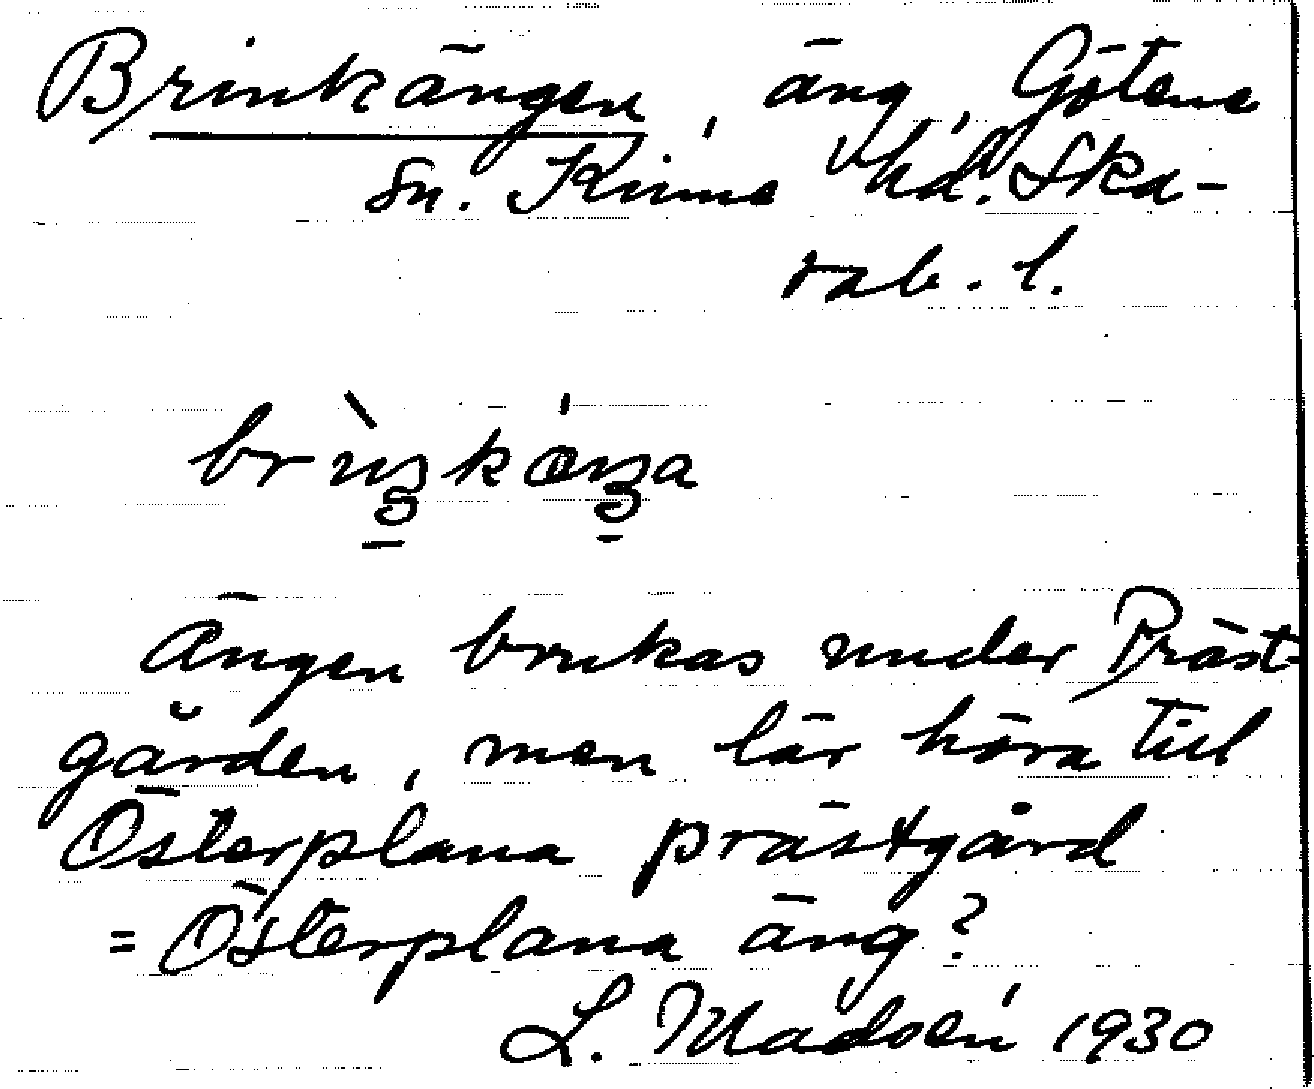 Brinkängen, äng, Götene
sn. Kinne hd. Ska-
rab. l.
brìŋkæ̀ŋa
Ängen brukas under Präst-
gården, men lär höra till
Österplana prästgård
= Österplana äng?
L. Madsén 1930